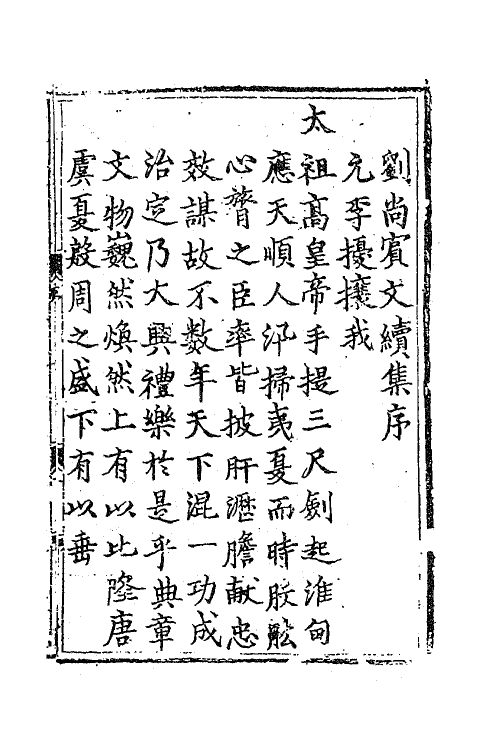 劉尚賓文續集序
元季擾攘我
太祖高皇帝手提三尺劍起淮甸
應天順人汛掃夷夏而時股肱
心膂之臣率皆披肝瀝膽献忠
效謀故不数年天下混一功成
治定乃大興禮樂於是乎典章
文物巍然煥然上有以比隆唐
虞夏殷周之盛下有以垂